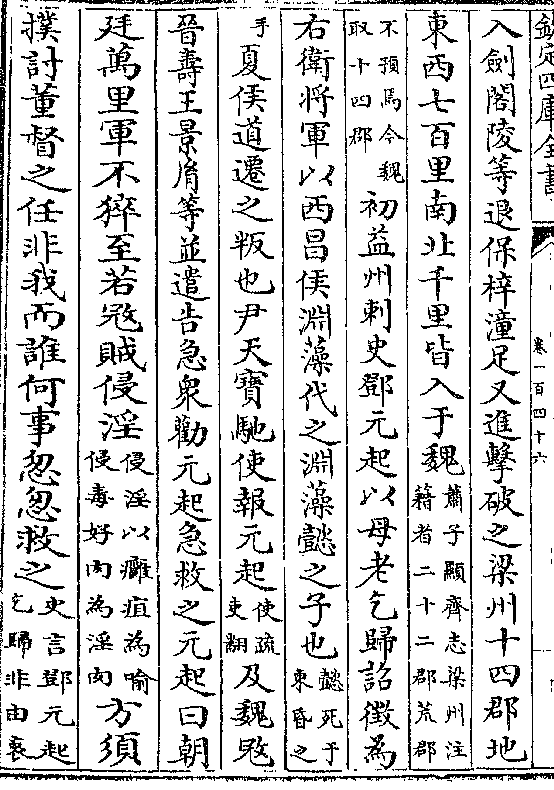 欽定四庫全書
卷一百四十六
入劍閣陵等退保梓潼足又進擊破之梁州十四郡地
東西七百里南北千里皆入于魏蕭子顯齊志梁州注籍者二十二郡荒郡
不預焉今魏取十四郡初益州刺史鄧元起以母老乞歸詔徵為
右衛將軍以西昌侯淵藻代之淵藻懿之子也懿死于東昏之
手夏侯道遷之叛也尹天寶馳使報元起使疏吏翻及魏㓂
晉壽王景𦙍等並遣告急衆勸元起急救之元起曰朝
廷萬里軍不猝至若㓂賊侵淫侵淫以癰疽為喻侵毒好肉為淫肉方須
撲討董督之任非我而誰何事怱怱救之史言鄧元起乞歸非由衷